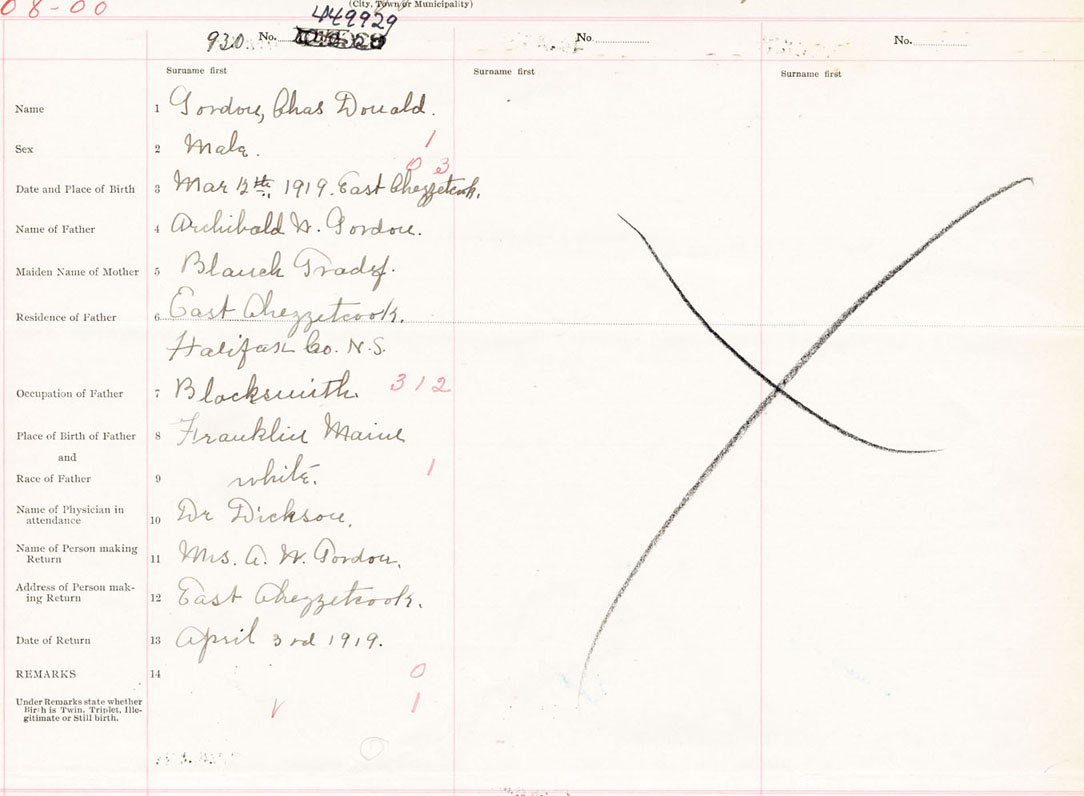 08-00
(City, Town or Municipality)
449929
930. No.
No.
No.
Surname first
Surname first
Surname first
Name 1 Gordon, Chas Donald.
Sex 2 Male. 1
0 3
Date and Place of Birth 3 Mar 12th, 1919. East Chezzetcook.
Name of Father 4 Archibald W. Gordon.
Maiden Name of Mother 5 Blanch
Residence of Father 6 East Chezzetcook.
Halifax Co. N.S.
Occupation of Father 7 Blacksmith. 312
Place of Birth of Father 8 Franklin Maine
and
Race of Father 9 white. 1
Name of Physician in
attendance 10 Dr Dickson.
Name of Person making
Return 11 Mrs. A. W. Gordon.
Address of Person mak-
ing Return 12 East Chezzetcook.
Date of Return 13 April 3rd 1919.
REMARKS 14 0
Under Remarks state whether
Birth is Twin, Triplet, Ille-
gitimate or Still birth. 1